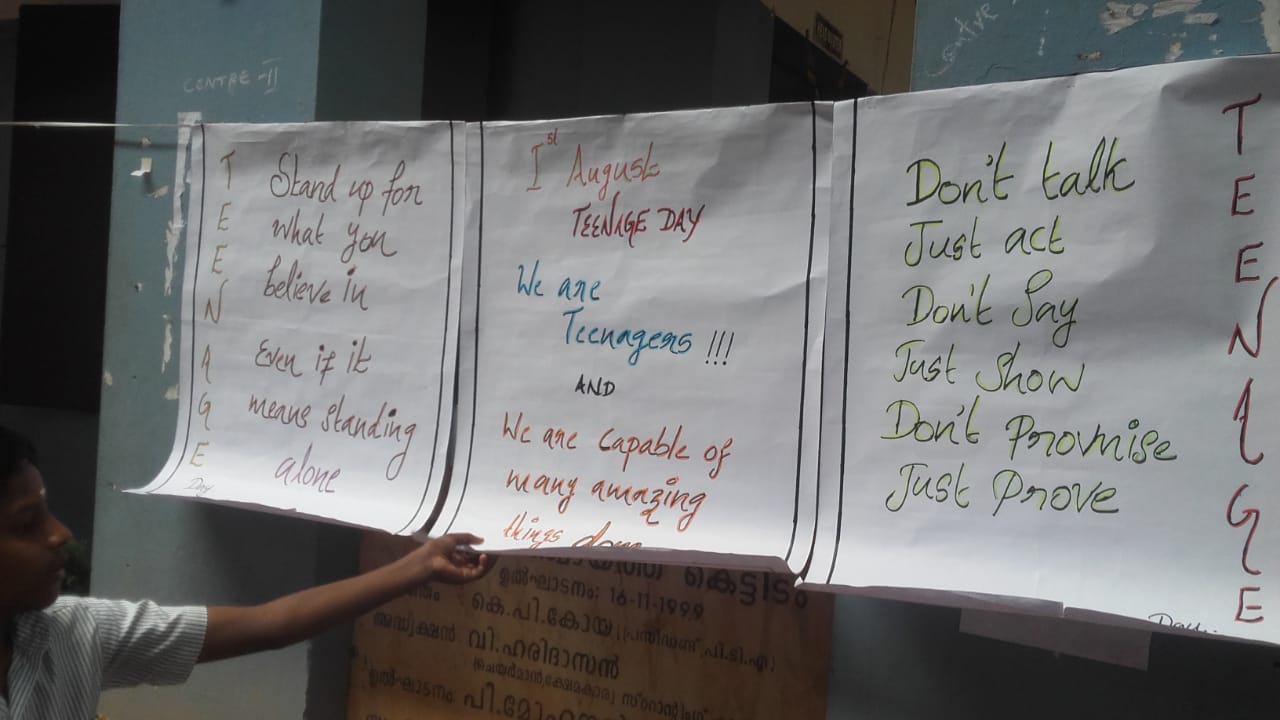 CONTRE-II
TEENAGE
Day
Stand up for
what you
believe in
Even if it
means standing
alone
1st August
TEENAGE DAY
We are
Teenagers !!!
AND
We are capable of
many amazing
things
Don't talk
Just act
Don't Say
Just Show
Don't Promise
Just Prove
TEENAGE
Day
കെട്ടിടം
ഉൽഘാടനം: 16-11-1999
കെ.പി.കോയ (പ്രസിഡണ്ട്, പി.ടി.എ)
അദ്ധ്യക്ഷൻ വി.ഹരിദാസൻ
ഉൽഘാടനം: